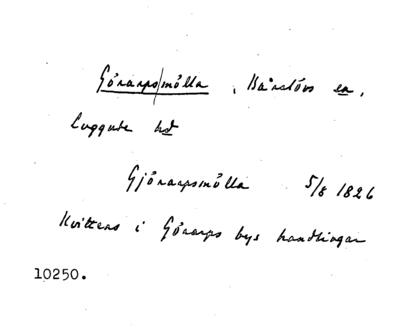 Görarps|mölla, Kårslövs sn,
Luggude hd
Gjörarpsmölla 5/8 1826
Kvittens i Görarps bys handlingar
10250.